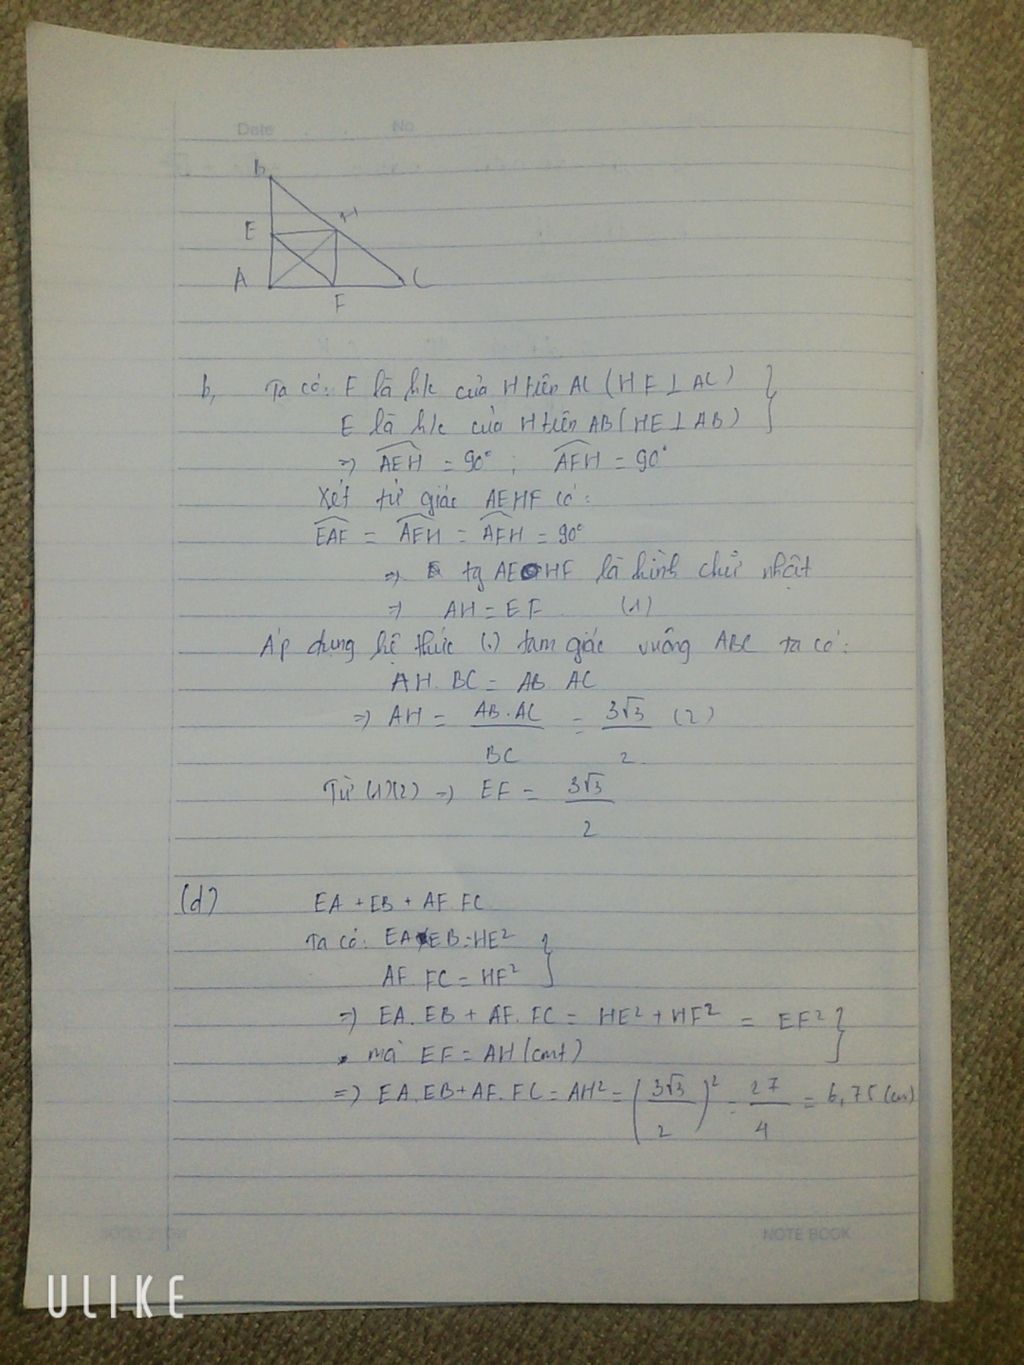 Date No
B
E H
A F C
b, Ta có: F là h/c của H trên AC (HF ⊥ AC) }
E là h/c của H trên AB (HE ⊥ AB) }
=> AEH = 90° ; AFH = 90°
Xét tứ giác AEHF có:
EAF = AEH = AFH = 90°
=> tg AEHF là hình chữ nhật
=> AH = EF (1)
Áp dụng hệ thức (.) tam giác vuông ABC ta có:
AH. BC = AB. AC
=> AH = AB.AC / BC = 3√3 / 2 (2)
Từ (1)(2) => EF = 3√3 / 2
(d) EA + EB + AF. FC
Ta có: EA.EB = HE² }
AF. FC = HF² }
=> EA. EB + AF. FC = HE² + HF² = EF² }
mà EF = AH (cmt) }
=> EA. EB + AF. FC = AH² = (3√3 / 2)² = 27 / 4 = 6,75 (cm)
NOTE BOOK
ULIKE